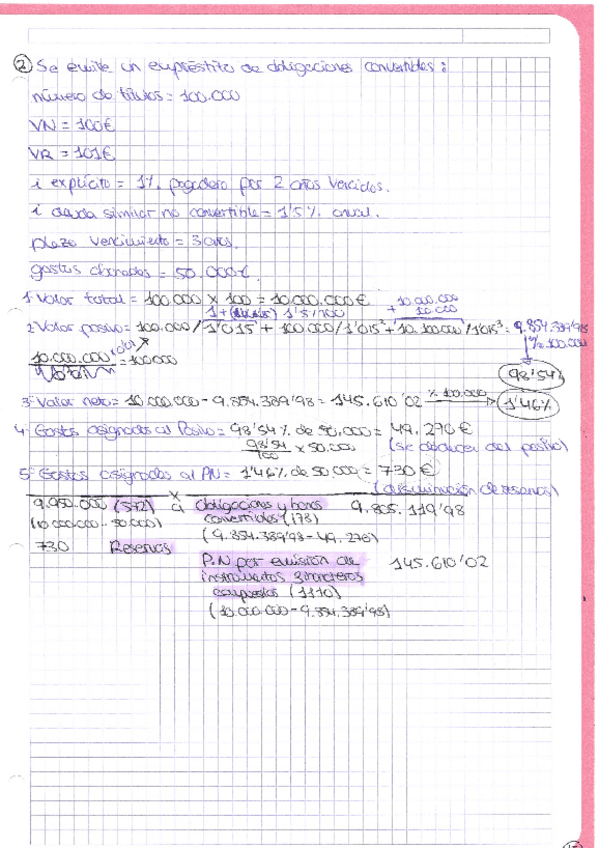 ② Se emite un empréstito de obligaciones convertibles:
número de títulos = 100.000
VN = 100€
VR = 101€
i explícito = 1% pagadero por 2 años vencidos.
i deuda similar no convertible = 1'5% anual.
plazo vencimiento = 3 años.
gastos abonados = 50.000€.
1- Valor total = 100.000 x 100 = 10.000.000€
10.000.000
+ 10.000
1+ 1'5/100
2- Valor pasivo = 100.000/1'015 + 100.000/1'015² + 10.100.000/1'015³ = 9.854.389'98
10.000.000 x 0'01 = 100.000
% 100.000
98'54%
3- Valor neto = 10.000.000 - 9.854.389'98 = 145.610'02 % 100.000 → 1'46%
4- Gastos asignados al Pasivo = 98'54% de 50.000 = 49.270€
98'54/100 x 50.000 (se deducen del pasivo)
5- Gastos asignados al PN = 1'46% de 50.000 = 730€
(disminución de reservas)
9.950.000 (572) x a Obligaciones y bonos 9.805.119'98
(10.000.000 - 50.000) convertibles (178)
(9.854.389'98 - 49.270)
730 Reservas
P.N por emisión de 145.610'02
instrumentos financieros
compuestos (1110)
(10.000.000 - 9.854.389'98)